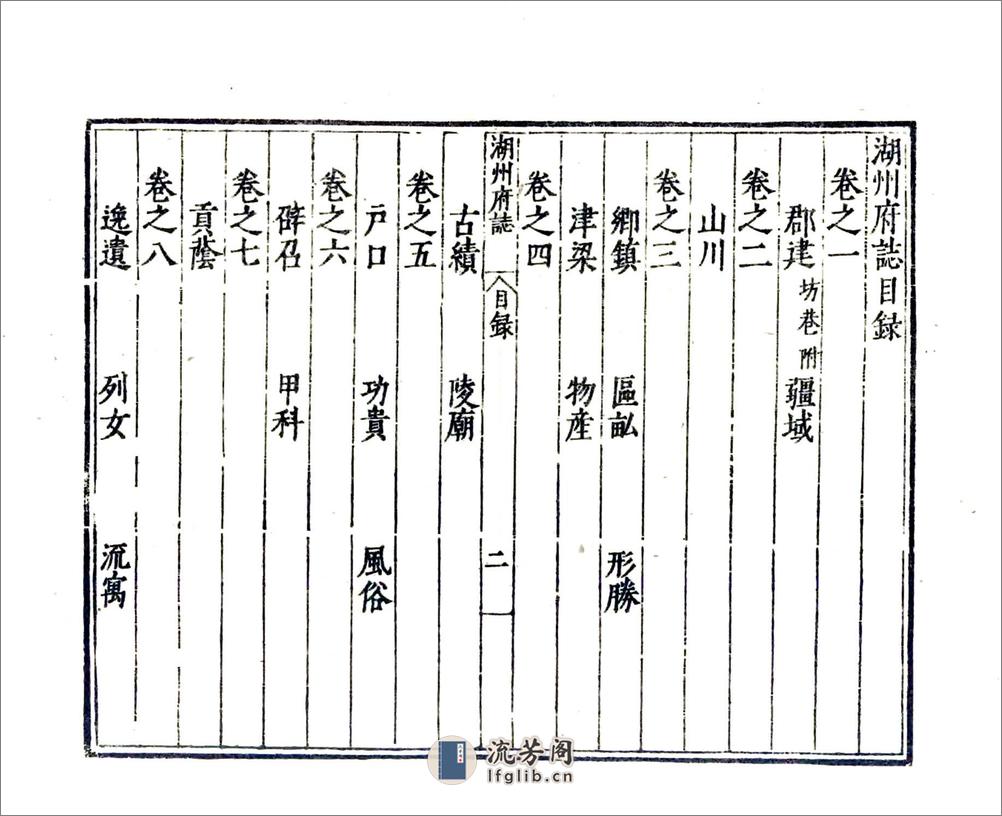 湖州府誌目録
卷之一
郡建 坊巷附 疆域
卷之二
山川
卷之三
鄉鎮 區畝 形勝
津梁 物產
卷之四
湖州府誌 目録 二
古績 陵廟
卷之五
戶口 功貴 風俗
卷之六
辟召 甲科
卷之七
貢蔭
卷之八
逸遺 列女 流寓
流芳阁
lfglib.cn